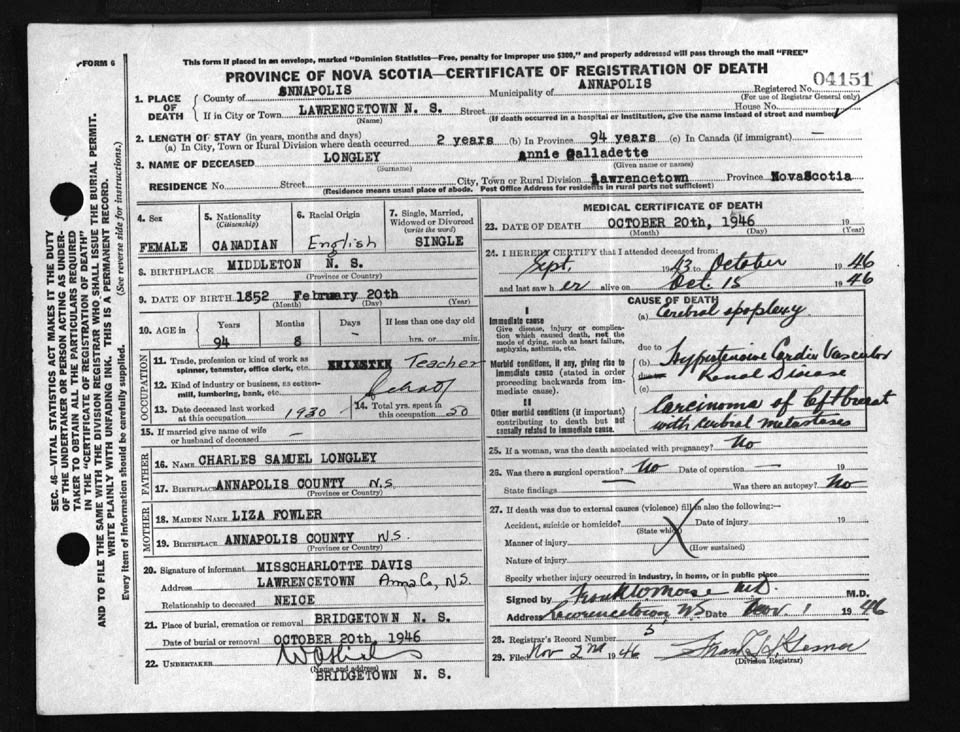 FORM 6
This form if placed in an envelope, marked "Dominion Statistics—Free, penalty for improper use $300," and properly addressed will pass through the mail "FREE"
PROVINCE OF NOVA SCOTIA—CERTIFICATE OF REGISTRATION OF DEATH
04151
1. PLACE OF DEATH
County of ANNAPOLIS Municipality of ANNAPOLIS Registered No.
(For use of Registrar General only)
If in City or Town LAWRENCETOWN N. S. Street House No.
(Name) (If death occurred in a hospital or institution, give the name instead of street and number)
2. LENGTH OF STAY (in years, months and days)
(a) In City, Town or Rural Division where death occurred 2 years (b) In Province 94 years (c) In Canada (if immigrant) —
3. NAME OF DECEASED LONGLEY Annie Galladette
(Surname) (Given name or names)
RESIDENCE No. Street City, Town or Rural Division Lawrencetown Province NovaScotia
(Residence means usual place of abode. Post Office Address for residents in rural parts not sufficient)
SEC. 46—VITAL STATISTICS ACT MAKES IT THE DUTY
OF THE UNDERTAKER OR PERSON ACTING AS UNDER-
TAKER TO OBTAIN ALL THE PARTICULARS REQUIRED
IN THE "CERTIFICATE OF REGISTRATION OF DEATH"
AND TO FILE THE SAME WITH THE DIVISION REGISTRAR WHO SHALL ISSUE THE BURIAL PERMIT.
WRITE PLAINLY WITH UNFADING INK. THIS IS A PERMANENT RECORD.
Every item of information should be carefully supplied. (See reverse side for instructions.)
4. Sex
FEMALE
5. Nationality
(Citizenship)
CANADIAN
6. Racial Origin
English
7. Single, Married,
Widowed or Divorced
(write the word)
SINGLE
8. BIRTHPLACE MIDDLETON N. S.
(Province or Country)
9. DATE OF BIRTH 1852 February 20th
(Month) (Day) (Year)
10. AGE in
Years Months Days If less than one day old
94 8 hrs. or min.
OCCUPATION
11. Trade, profession or kind of work as
spinner, teamster, office clerk, etc. Teacher
12. Kind of industry or business, as cotton-
mill, lumbering, bank, etc. School
13. Date deceased last worked
at this occupation 1930
14. Total yrs. spent in
this occupation 50
15. If married give name of wife
or husband of deceased —
FATHER
16. NAME CHARLES SAMUEL LONGLEY
17. BIRTHPLACE ANNAPOLIS COUNTY N.S.
(Province or Country)
MOTHER
18. MAIDEN NAME LIZA FOWLER
19. BIRTHPLACE ANNAPOLIS COUNTY N.S.
(Province or Country)
20. Signature of informant MISSCHARLOTTE DAVIS
Address LAWRENCETOWN Anna Co, N.S.
Relationship to deceased NEICE
21. Place of burial, cremation or removal BRIDGETOWN N. S.
Date of burial or removal OCTOBER 20th, 1946
22. UNDERTAKER
(Name and address)
BRIDGETOWN N. S.
MEDICAL CERTIFICATE OF DEATH
23. DATE OF DEATH OCTOBER 20th, 1946 19
(Month) (Day) (Year)
24. I HEREBY CERTIFY that I attended deceased from:
Sept. 1943 to October 1946
and last saw her alive on Oct. 15 1946
CAUSE OF DEATH
I
Immediate cause
Give disease, injury or complica-
tion which caused death, not the
mode of dying, such as heart failure,
asphyxia, asthenia, etc.
(a) Cerebral apoplexy.
due to
Morbid conditions, if any, giving rise to
immediate cause (stated in order
proceeding backwards from im-
mediate cause).
(b) Hypertensive Cardio Vascular
due to
Renal Disease
(c)
II
Other morbid conditions (if important)
contributing to death but not
causally related to immediate cause.
Carcinoma of left breast
with metastases
25. If a woman, was the death associated with pregnancy? No
26. Was there a surgical operation? No Date of operation — 19
State findings Was there an autopsy? No
27. If death was due to external causes (violence) fill in also the following:—
Accident, suicide or homicide? Date of injury 19
(State which)
Manner of injury
(How sustained)
Nature of injury
Specify whether injury occurred in industry, in home, or in public place
Signed by Frank W. Morse M.D. M.D.
Address Lawrencetown N.S. Date Nov. 1 1946
28. Registrar's Record Number 5
29. Filed Nov 2nd 1946
(Division Registrar)